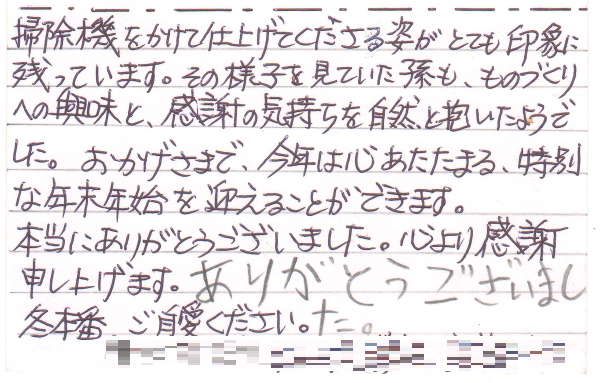 掃除機をかけて仕上げてくださる姿がとても印象に
残っています。その様子を見ていた孫も、ものづくり
への興味と、感謝の気持ちを自然と抱いたようで
した。おかげさまで、今年は心あたたまる、特別
な年末年始を迎えることができます。
本当にありがとうございました。心より感謝
申し上げます。ありがとうございまし
た。
冬本番 ご自愛ください。